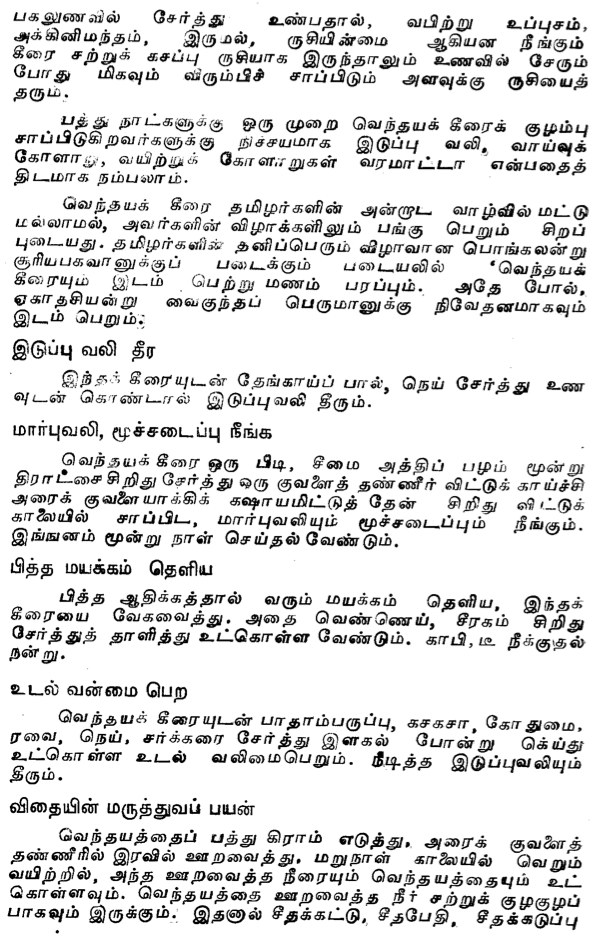 பகலுணவில் சேர்த்து உண்பதால், வயிற்று உப்புசம்,
அக்கினிமந்தம், இருமல், ருசியின்மை ஆகியன நீங்கும்
கீரை சற்றுக் கசப்பு ருசியாக இருந்தாலும் உணவில் சேரும்
போது மிகவும் விரும்பிச் சாப்பிடும் அளவுக்கு ருசியைத்
தரும்.
பத்து நாட்களுக்கு ஒரு முறை வெந்தயக் கீரைக் குழம்பு
சாப்பிடுகிறவர்களுக்கு நிச்சயமாக இடுப்பு வலி, வாய்வுக்
கோளாறு, வயிற்றுக் கோளாறுகள் வரமாட்டா என்பதைத்
திடமாக நம்பலாம்.
வெந்தயக் கீரை தமிழர்களின் அன்றாட வாழ்வில் மட்டு
மல்லாமல், அவர்களின் விழாக்களிலும் பங்கு பெறும் சிறப்
புடையது. தமிழர்களின் தனிப்பெரும் விழாவான பொங்கலன்று
சூரியபகவானுக்குப் படைக்கும் படையலில் ‘வெந்தயக்
கீரையும் இடம் பெற்று மணம் பரப்பும். அதே போல்,
ஏகாதசியன்று வைகுந்தப் பெருமானுக்கு நிவேதனமாகவும்
இடம் பெறும்.
இடுப்பு வலி தீர
இந்தக் கீரையுடன் தேங்காய்ப் பால், நெய் சேர்த்து உண
வுடன் கொண்டால் இடுப்புவலி தீரும்.
மார்புவலி, மூச்சடைப்பு நீங்க
வெந்தயக் கீரை ஒரு பிடி, சீமை அத்திப் பழம் மூன்று
திராட்சை சிறிது சேர்த்து ஒரு குவளைத் தண்ணீர் விட்டுக் காய்ச்சி
அரைக் குவளையாக்கிக் கஷாயமிட்டுத் தேன் சிறிது விட்டுக்
காலையில் சாப்பிட, மார்புவலியும் மூச்சடைப்பும் நீங்கும்.
இங்ஙனம் மூன்று நாள் செய்தல் வேண்டும்.
பித்த மயக்கம் தெளிய
பித்த ஆதிக்கத்தால் வரும் மயக்கம் தெளிய, இந்தக்
கீரையை வேகவைத்து. அதை வெண்ணெய், சீரகம் சிறிது
சேர்த்துத் தாளித்து உட்கொள்ள வேண்டும். காபி, டீ நீக்குதல்
நன்று.
உடல் வன்மை பெற
வெந்தயக் கீரையுடன் பாதாம்பருப்பு, கசகசா, கோதுமை,
ரவை, நெய், சர்க்கரை சேர்த்து இளகல் போன்று செய்து
உட்கொள்ள உடல் வலிமைபெறும். நீடித்த இடுப்புவலியும்
தீரும்.
விதையின் மருத்துவப் பயன்
வெந்தயத்தைப் பத்து கிராம் எடுத்து, அரைக் குவளைத்
தண்ணீரில் இரவில் ஊறவைத்து. மறுநாள் காலையில் வெறும்
வயிற்றில், அந்த ஊறவைத்த நீரையும் வெந்தயத்தையும் உட்
கொள்ளவும். வெந்தயத்தை ஊறவைத்த நீர் சற்றுக் குழகுழப்
பாகவும் இருக்கும். இதனால் சீதக்கட்டு, சீதபேதி, சீதக்கடுப்பு